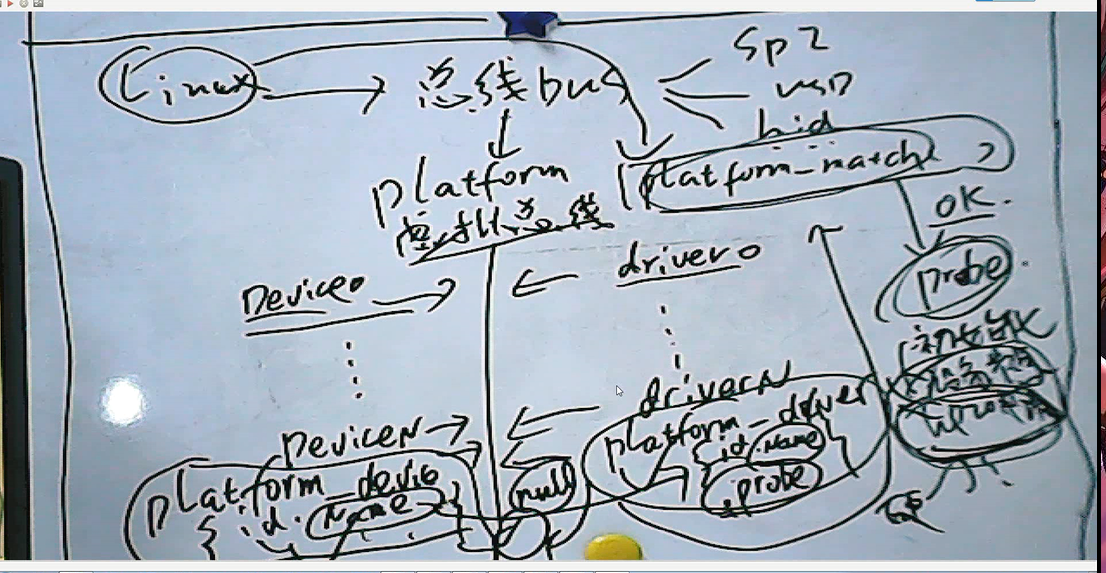 Linux
总线bus
SPI
usb
hid
platform
虚拟总线
platform_match
OK.
probe.
Device0
driver0
DeviceN
driverN
初始化
platform_device
{ id. name
null
platform_driver
{ id. name
.probe